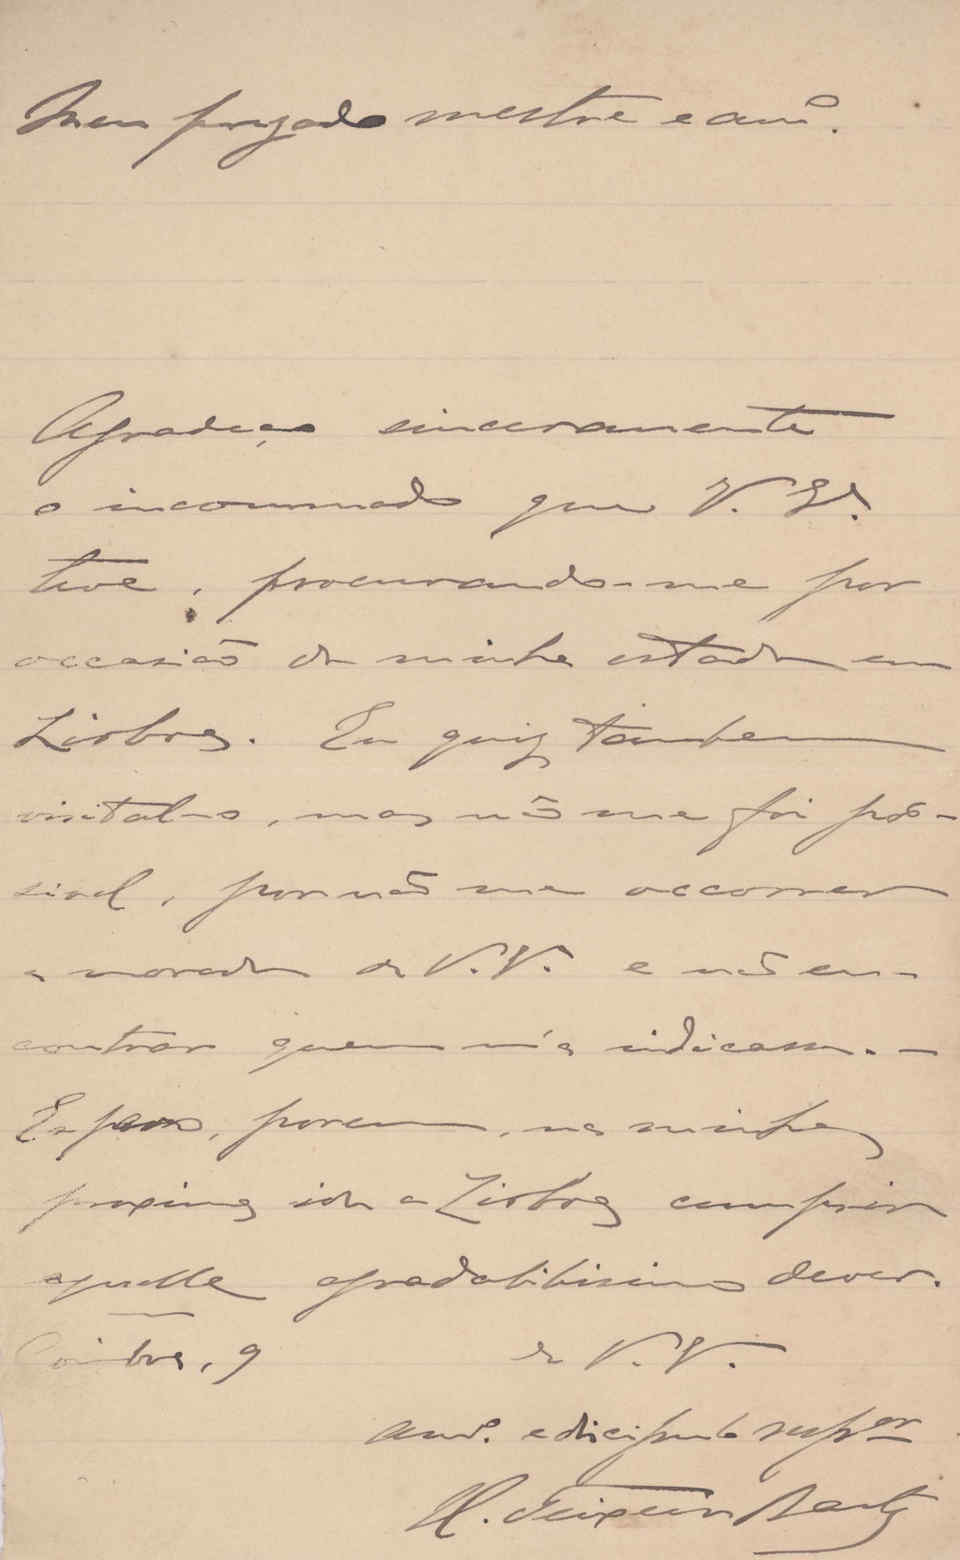 Meu prezado mestre e am.º
Agradeço sinceramente
o incommodo que V. Ex.ª
teve, procurando-me por
occasião da minha estada em
Lisboa. Eu quiz tambem
visital-o, mas não me foi pos-
sivel, por não me occorrer
a morada de V. V. e não en-
contrar quem m'a indicasse. —
Espero, porem, na minha
proxima ida a Lisboa cumprir
aquelle agradabilissimo dever.
Coimbra, 9 de V. V.
am.º e discipulo
H. Teixeira Bastos